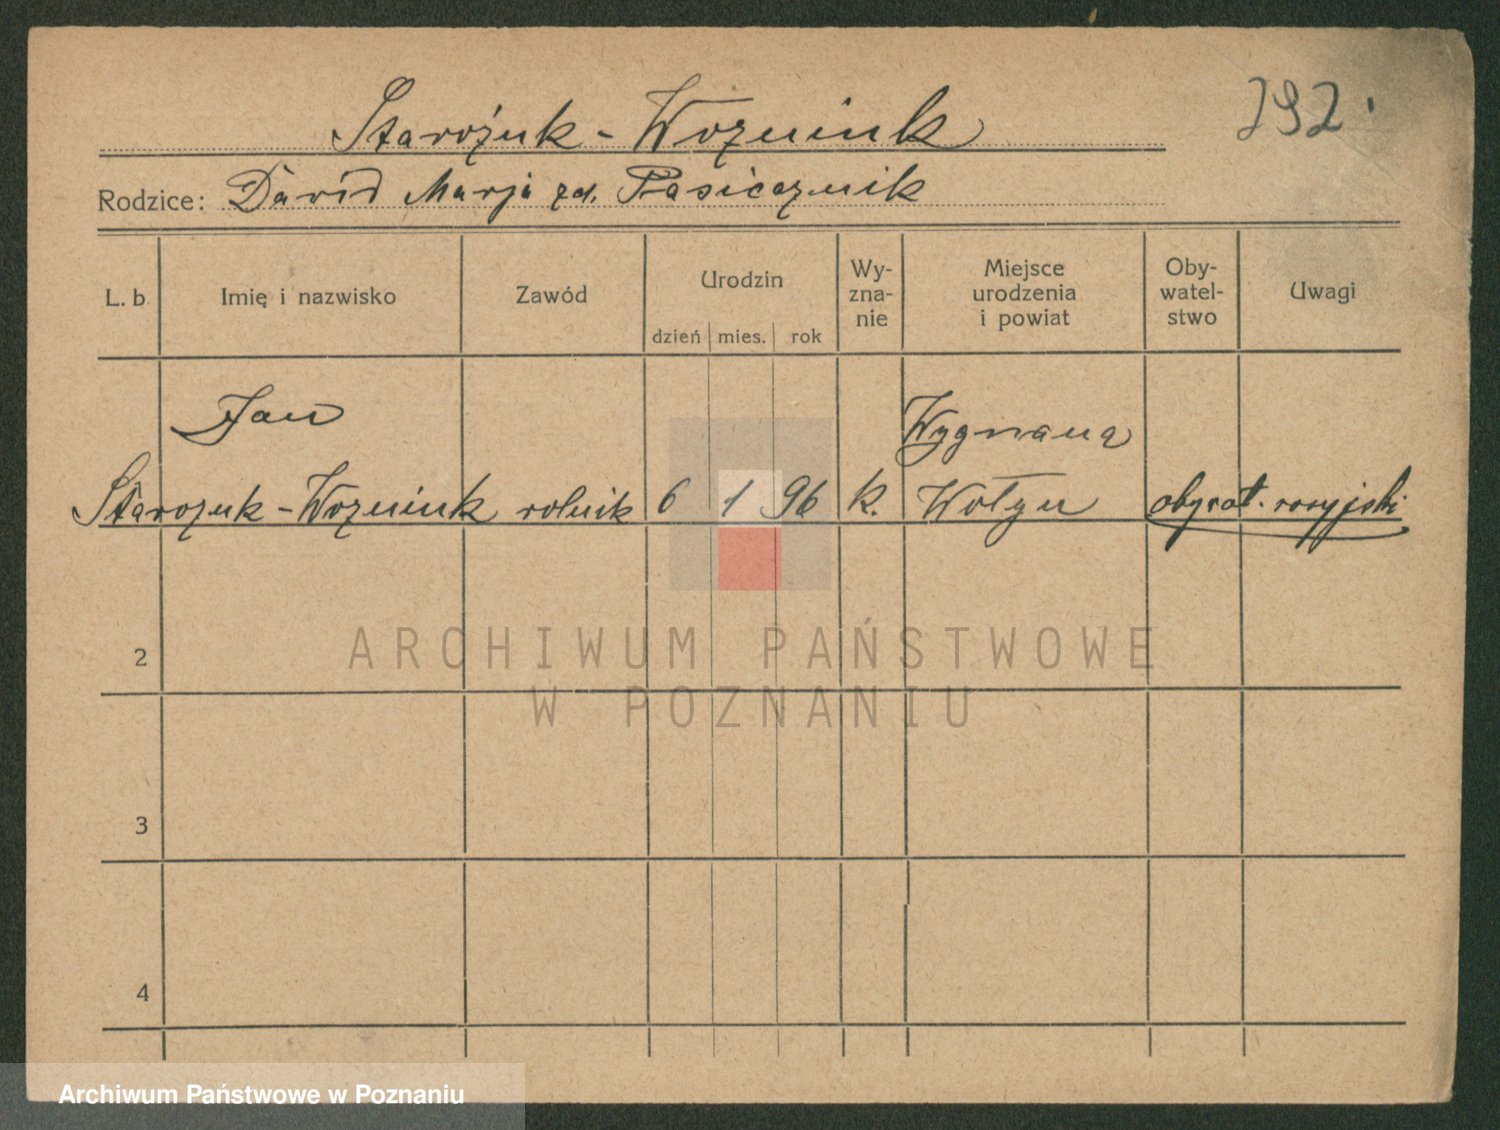 Starożuk - Wozniuk
292.
Rodzice: Dawid Marja zd. Pasicznik
L. b.
Imię i nazwisko
Zawód
Urodzin
dzień mies. rok
Wy-
zna-
nie
Miejsce
urodzenia
i powiat
Oby-
watel-
stwo
Uwagi
Jan
Starozuk - Wozniuk
rolnik
6 1 96
k.
Wołyn
obywat. rosyjski
2
3
4
ARCHIWUM PAŃSTWOWE
W POZNANIU
Archiwum Państwowe w Poznaniu